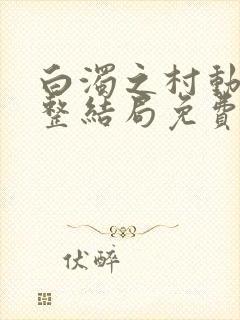 白濁之村動
整結局免費
伏醉